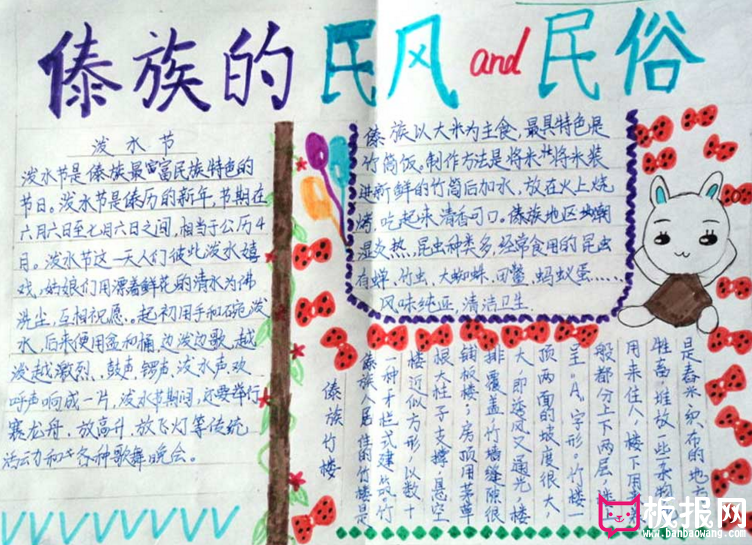 傣族的民风and民俗
泼水节
泼水节是傣族最富民族特色的
节日。泼水节是傣历的新年,节期在
六月六日至七月六日之间,相当于公历4
月。泼水节这一天人们彼此泼水嬉
戏,姑娘们用漂着鲜花的清水为佛
洗尘,互相祝愿。起初用手和碗泼
水,后来便用盆和桶边泼边歌,越
泼越激烈,鼓声,锣声,泼水声,欢
呼声响成一片,泼水节期间,还要举行
赛龙舟,放高升,放飞灯等传统
活动和各种歌舞晚会。
傣族以大米为主食,最具特色是
竹筒饭。制作方法是将米将米装
进新鲜的竹筒后加水,放在火上烧
烤,吃起来清香可口。傣族地区潮
湿炎热,昆虫种类多,经常食用的昆虫
有蝉,竹虫,大蜘蛛,田鳖,蚂蚁蛋......
风味纯正,清洁卫生
傣族竹楼
傣族人居住的竹楼是
一种干栏式建筑竹
楼近似方形,以数十
根大柱子支撑,悬空
铺板楼;房顶用茅草
排覆盖,竹墙缝隙很
大,即透风又通光楼
顶两面的坡度很大
呈“A”字形。竹楼
般都分上下两层,
用来住人,楼下用
牲畜,堆放一些杂物
是舂米织布的地
板报网
www.banbaowang.com